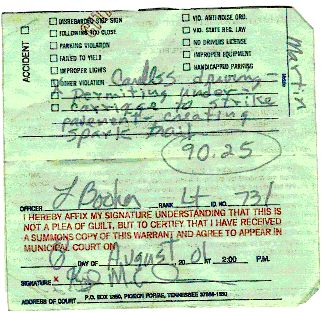 ACCIDENT
DISREGARDED STOP SIGN
FOLLOWING TOO CLOSE
PARKING VIOLATION
FAILED TO YIELD
IMPROPER LIGHTS
OTHER VIOLATION
VIO. ANTI-NOISE ORD.
VIO. STATE REG. LAW
NO DRIVERS LICENSE
IMPROPER EQUIPMENT
HANDICAPPED PARKING
Martin
Careless driving -
Permiting under-
carriage to strike
pavement - creating
spark trail
90.25
OFFICER L Booher RANK Lt I.D. NO. 731
I HEREBY AFFIX MY SIGNATURE UNDERSTANDING THAT THIS IS
NOT A PLEA OF GUILT, BUT TO CERTIFY THAT I HAVE RECEIVED
A SUMMONS COPY OF THIS WARRANT AND AGREE TO APPEAR IN
MUNICIPAL COURT ON
DAY OF August 20 01 AT 2:00 P.M.
SIGNATURE X
ADDRESS OF COURT P.O. BOX 1350, PIGEON FORGE, TENNESSEE